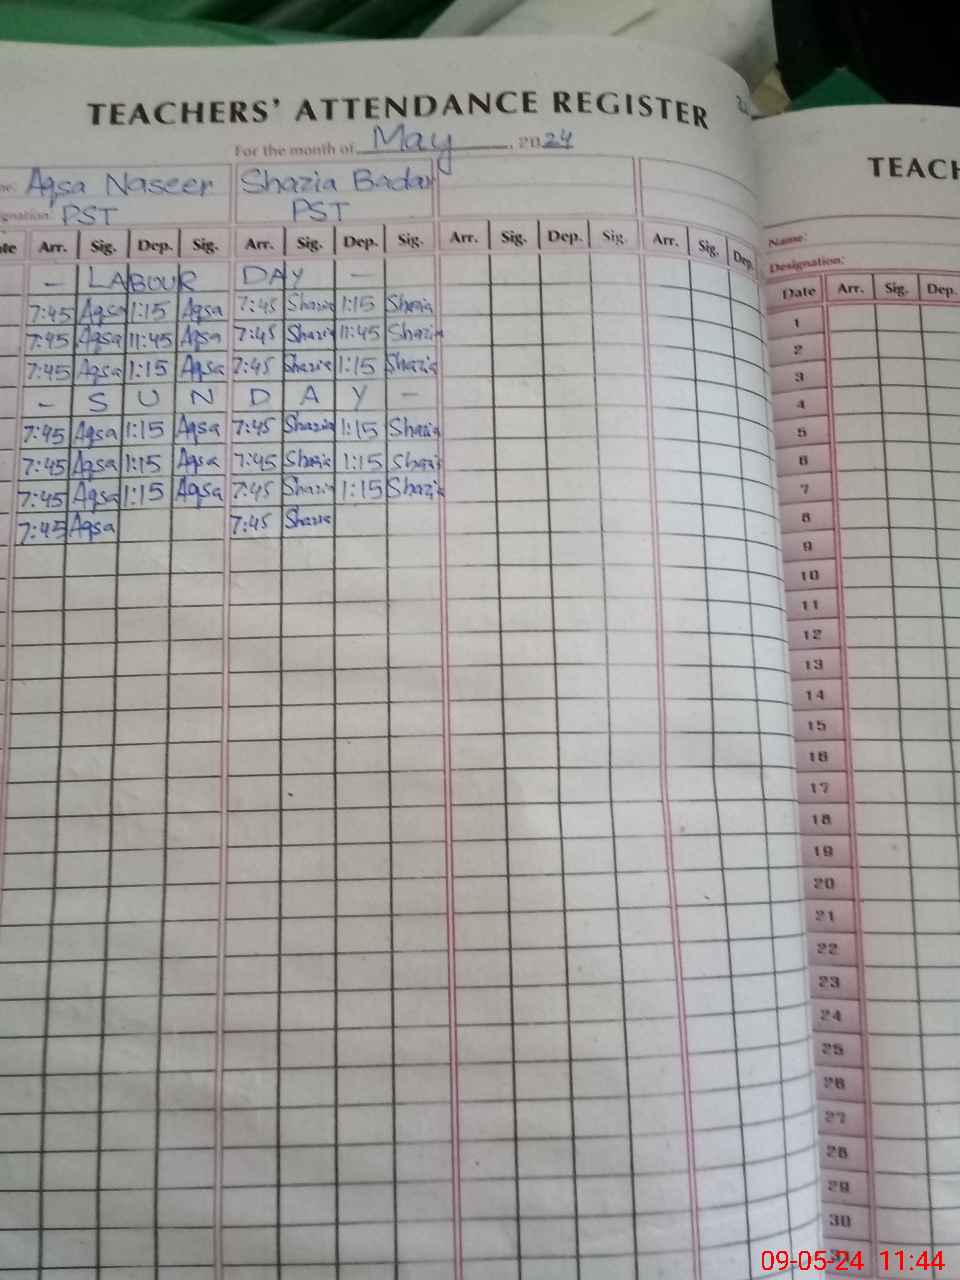 TEACHERS' ATTENDANCE REGISTER
For the month of May, 2024
ne: Aqsa Naseer Shazia Badar
gnation: PST PST
te Arr. Sig. Dep. Sig. Arr. Sig. Dep. Sig. Arr. Sig. Dep. Sig. Arr. Sig. Dep.
- LABOUR DAY -
7:45 Aqsa 1:15 Aqsa 7:45 Shazia 1:15 Shazia
7:45 Aqsa 11:45 Aqsa 7:45 Shazia 11:45 Shazia
7:45 Aqsa 1:15 Aqsa 7:45 Shazia 1:15 Shazia
- S U N D A Y -
7:45 Aqsa 1:15 Aqsa 7:45 Shazia 1:15 Shazia
7:45 Aqsa 1:15 Aqsa 7:45 Shazia 1:15 Shazia
7:45 Aqsa 1:15 Aqsa 7:45 Shazia 1:15 Shazia
7:45 Aqsa 7:45 Shazia
TEACH
Name:
Designation:
Date Arr. Sig. Dep.
1
2
3
4
5
6
7
8
9
10
11
12
13
14
15
16
17
18
19
20
21
22
23
24
25
26
27
28
29
30
31
09-05-24 11:44